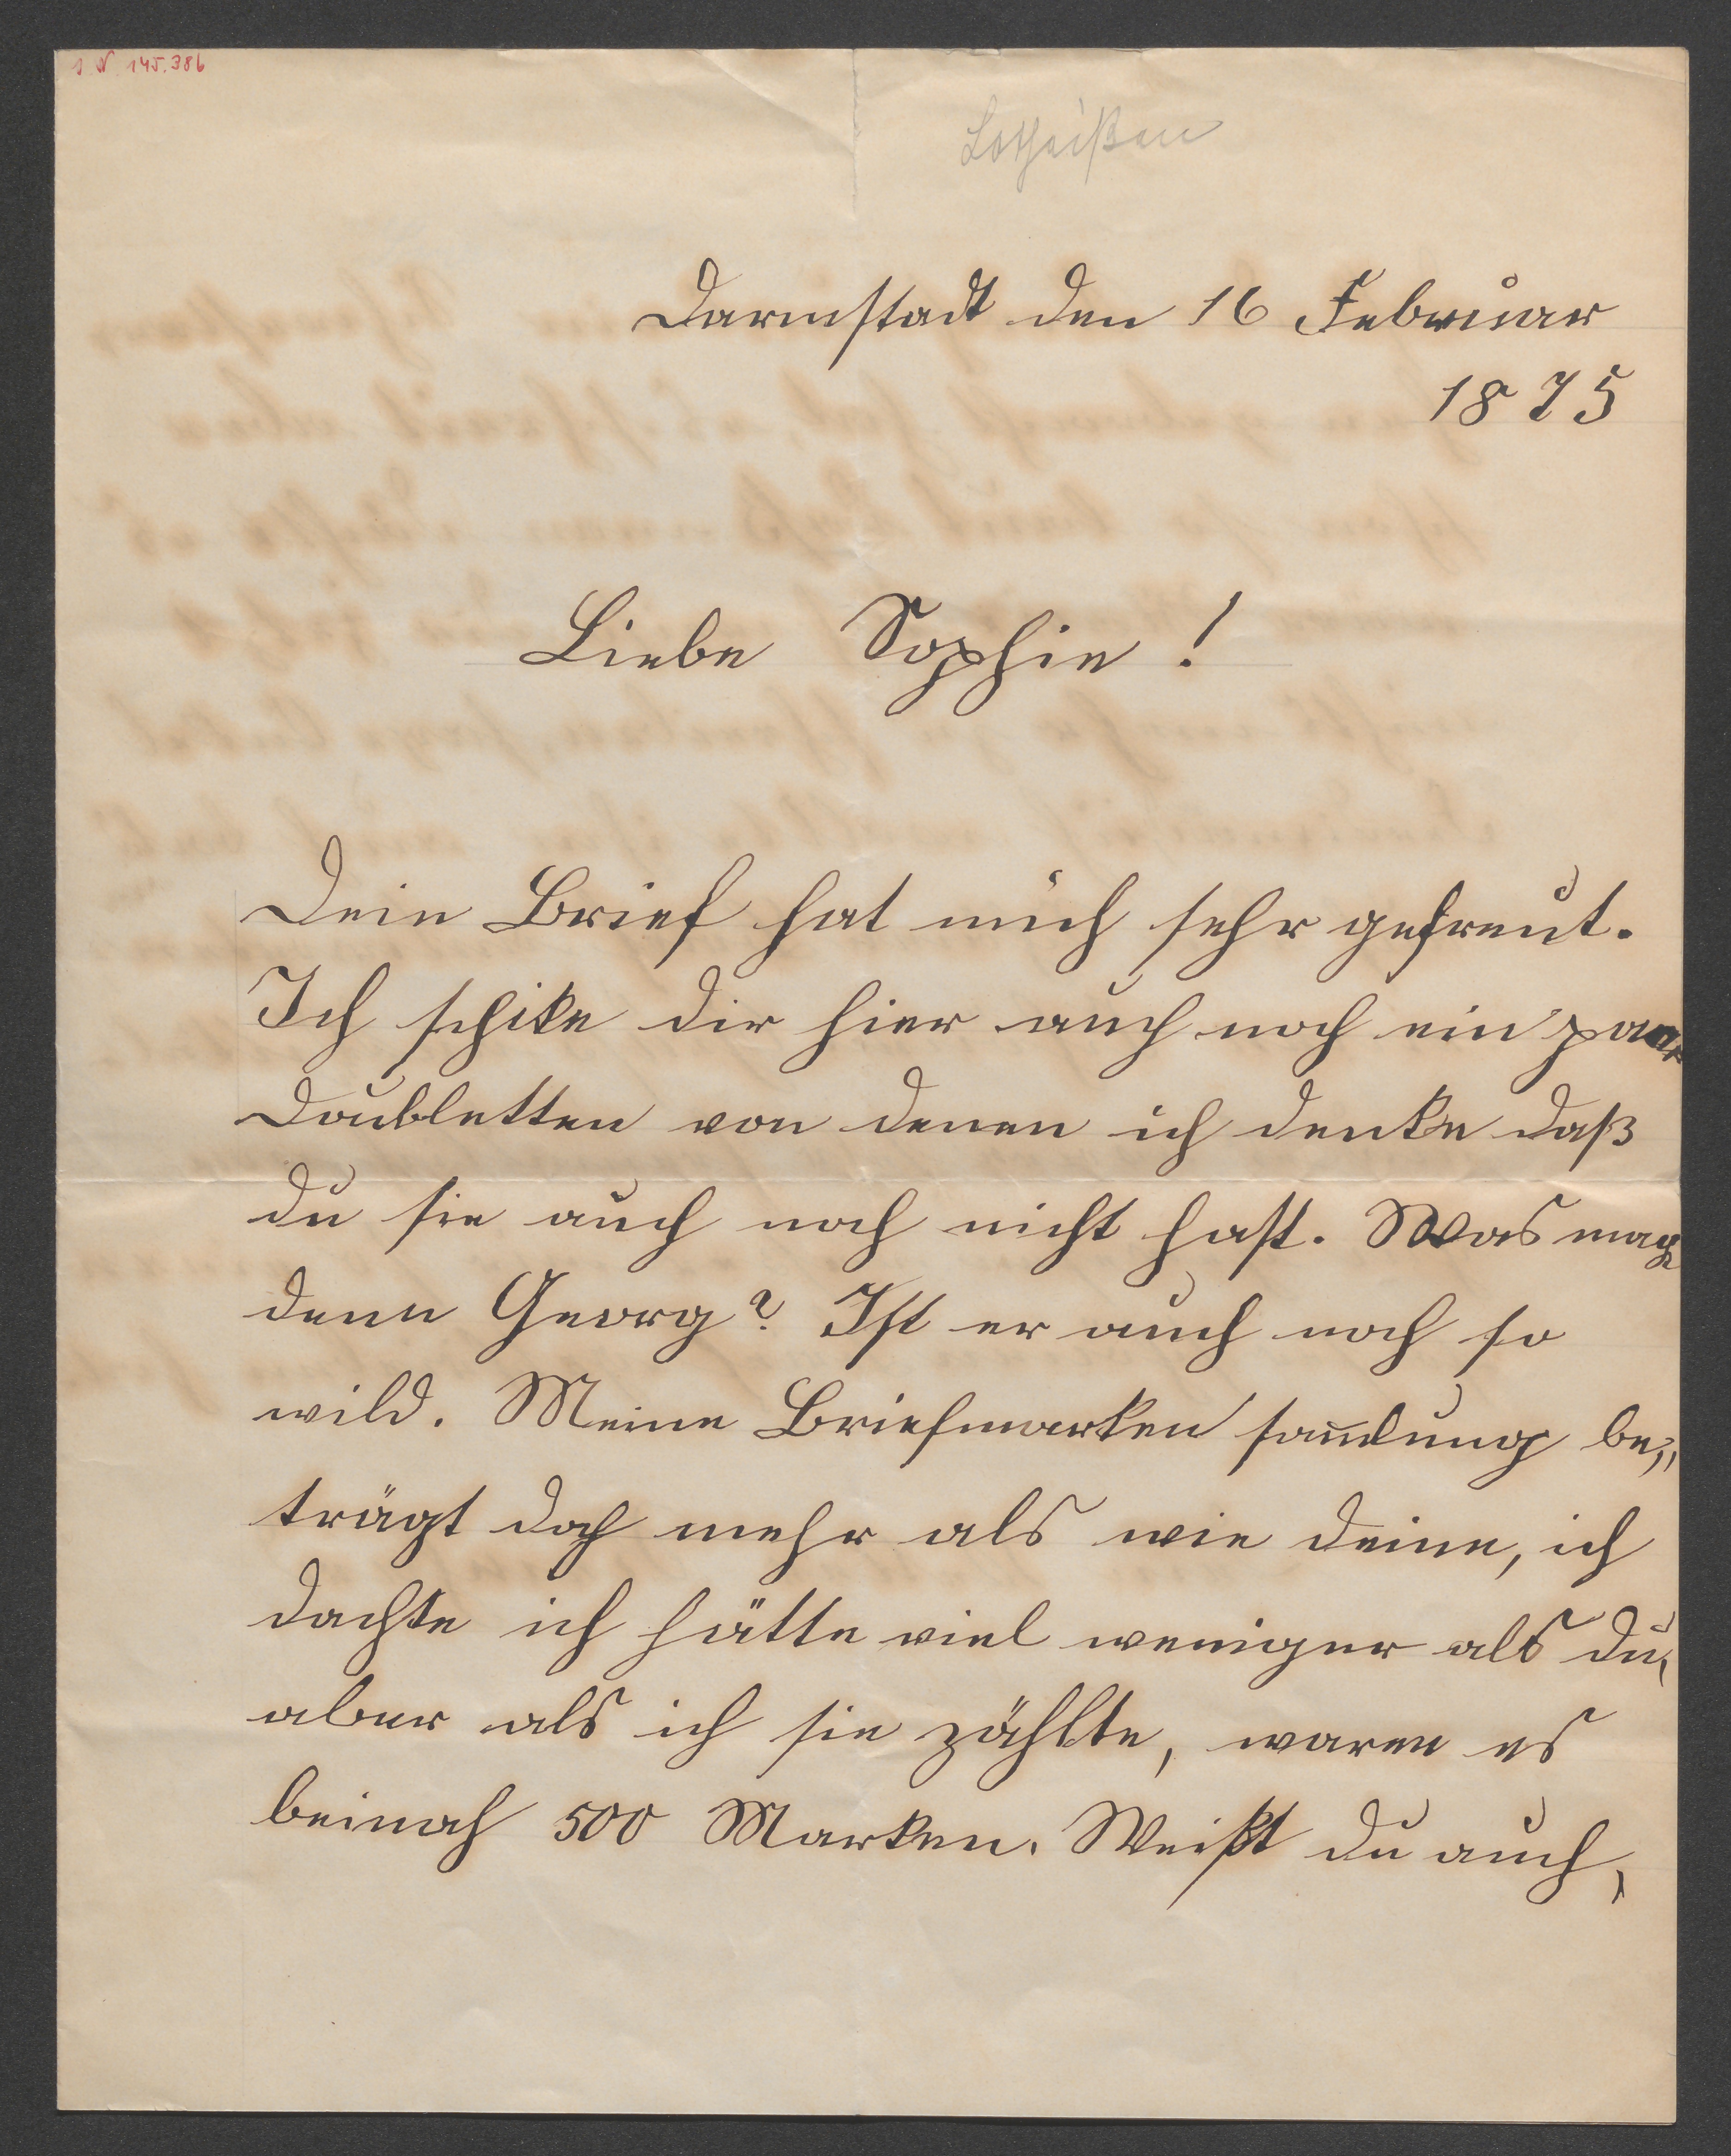 I. N. 145.386
Lotheißen
Darmstadt den 16 Februar
1875
Liebe Sophie!
Dein Brief hat mich sehr gefreut.
Ich schike dir hier auch noch ein paar
Doubletten von denen ich denke daß
du sie auch noch nicht hast. Was mag
denn Georg? Ist er auch noch so
wild. Meine Briefmarken sam̄lung be„
trägt doch mehr als wie deine, ich
dachte ich hätte viel weniger als du,
aber als ich sie zählte, waren es
beinah 500 Marken. Weißt du auch,